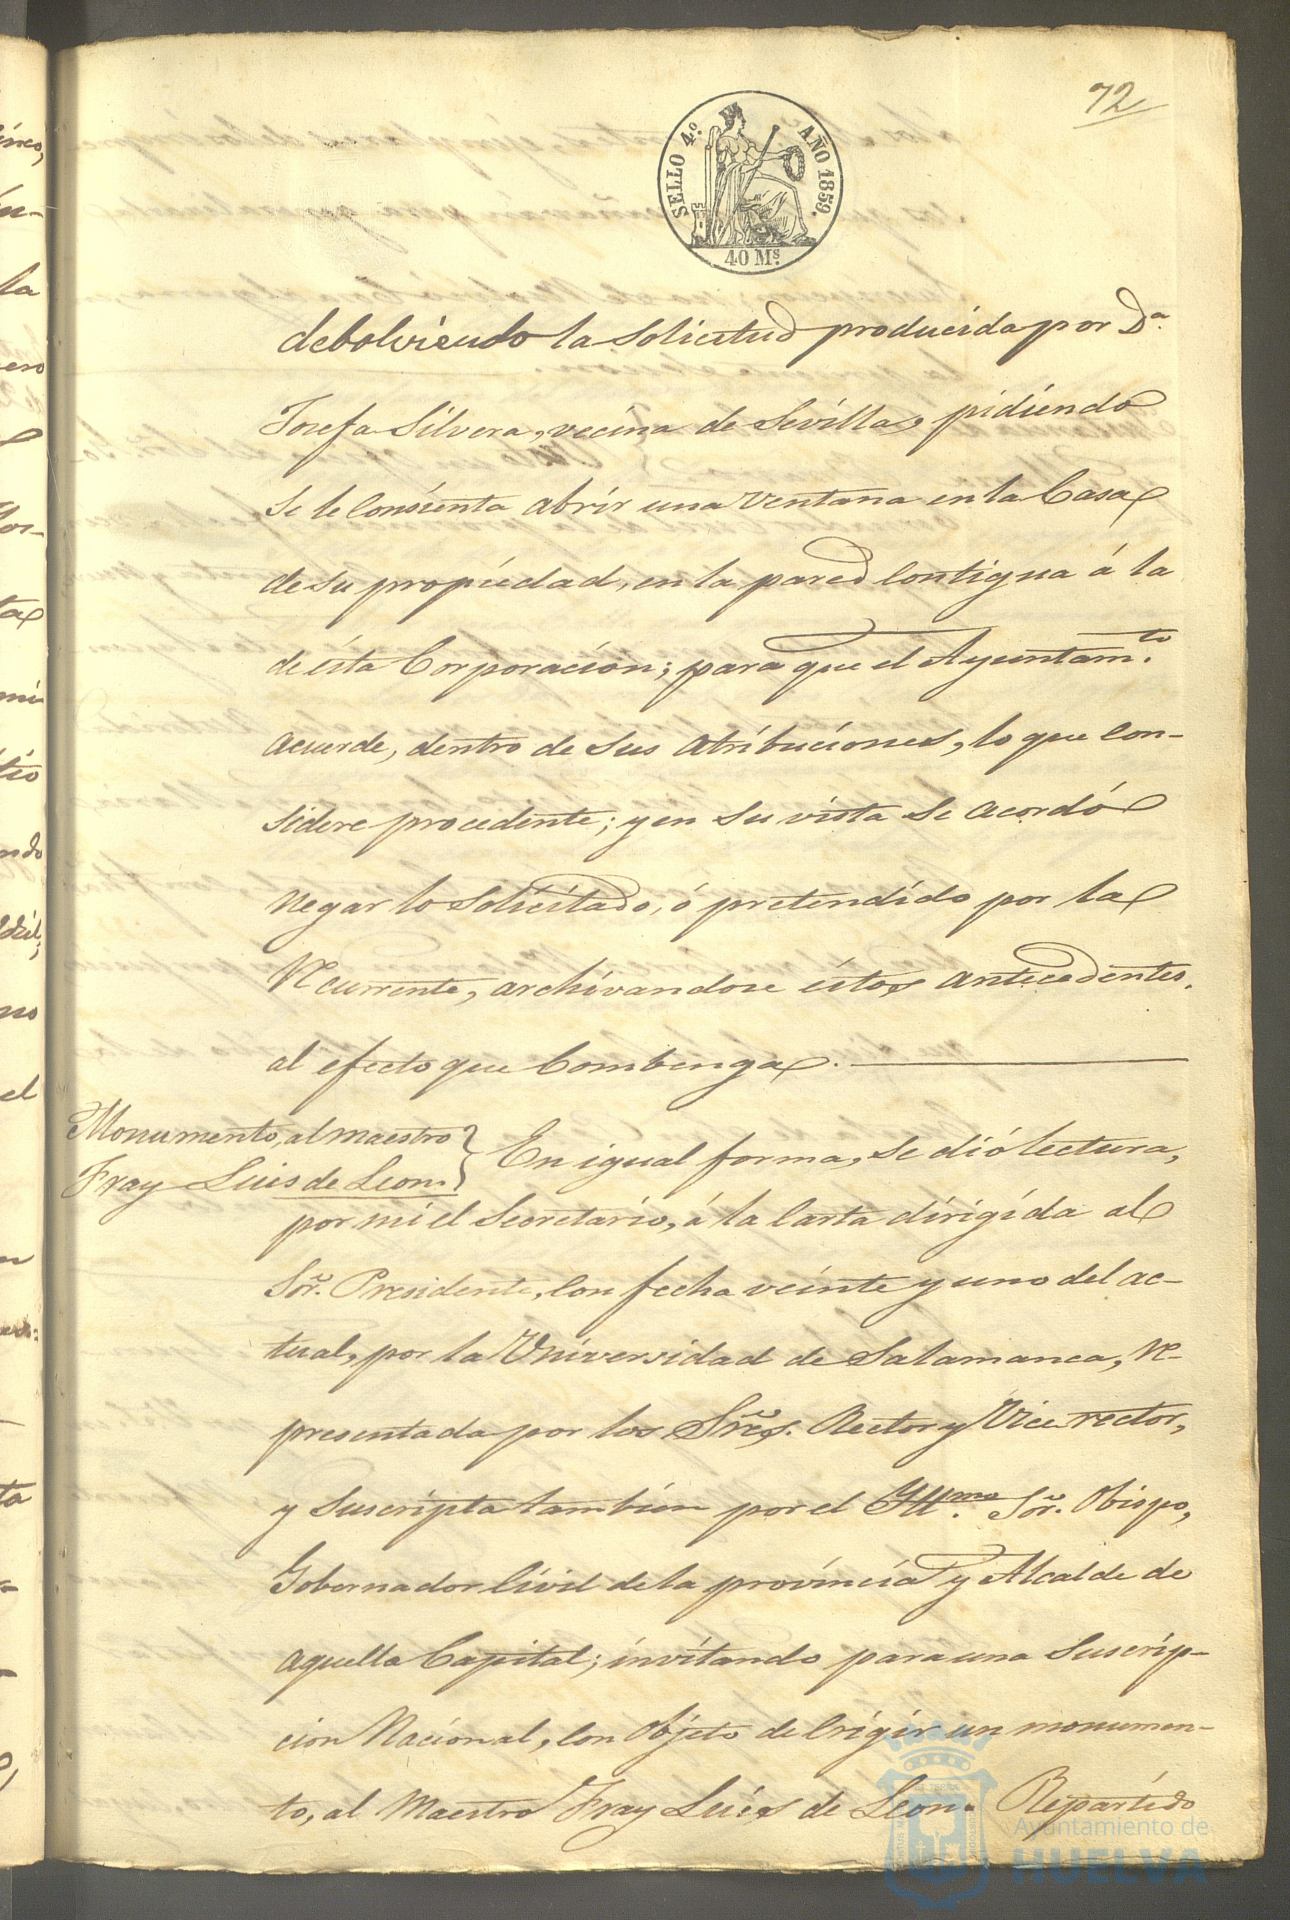 72
SELLO 4.º AÑO 1859.
40 Ms.
debolviendo la solicitud producida por Dª.
Josefa Silvera, vecina de Sevilla, pidiendo
se le consienta abrir una ventana en la Casa
de su propiedad, en la pared contigua á la
de ésta Corporacion; para que el Ayuntamto.
acuerde, dentro de sus atribuciones, lo que con-
sidere procedente; y en su vista se acordó
negar lo solicitado, ó pretendido por la
Recurrente, archivandose éstos antecedentes.
al efecto que Combenga.
Monumento, al maestro
Fray Luis de Leon.
En igual forma, se dió lectura,
por mi el Secretario, á la Carta dirigida al
Sor. Presidente, con fecha veinte y uno del ac-
tual, por la Universidad de Salamanca, re-
presentada por los Sres. Rector y Vice rector,
y Suscripta tambien por el Illmo. Sor. Obispo,
Gobernador Civil de la provincia y Alcalde de
aquella Capital; invitando para una Suscrip-
cion Nacional, con objeto de Erigir un monumen-
to, al Maestro Fray Luis de Leon. Repartido
Ayuntamiento de
HUELVA